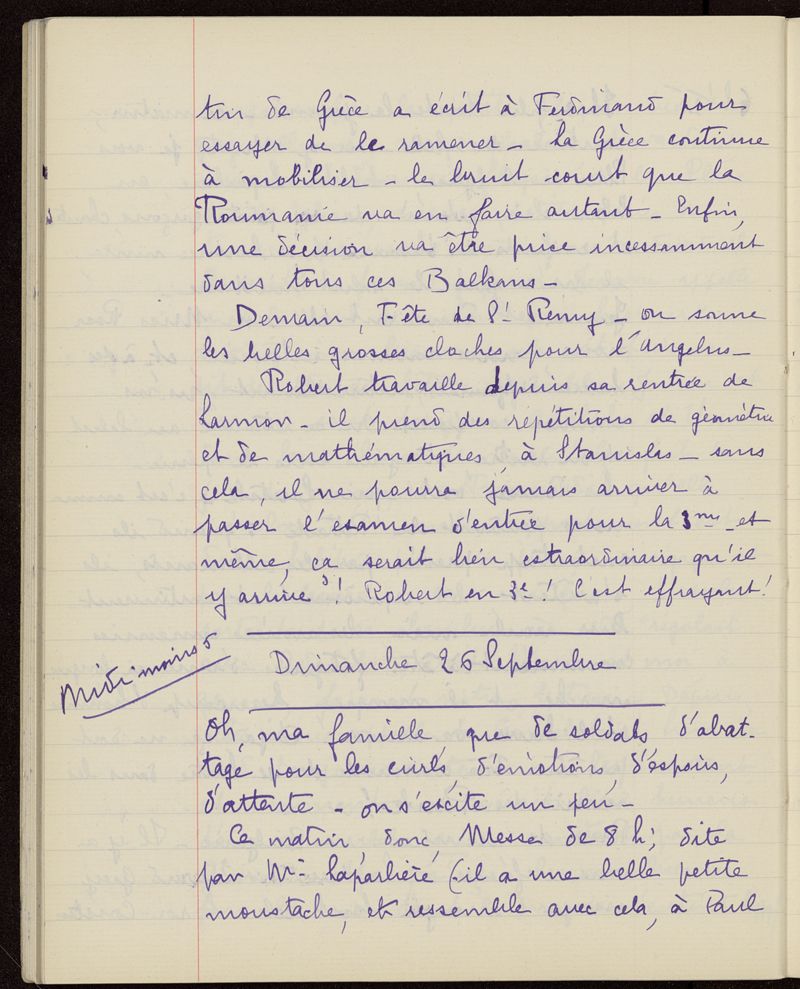 tin de Grèce a écrit à Ferdinand pour
essayer de le ramener - La Grèce continue
à mobiliser - le bruit court que la
Roumanie va en faire autant - Enfin,
une décision va être prise incessamment
dans tous ces Balkans -
Demain, Fête de St Remy - on sonne
les belles grosses cloches pour l'angelus -
Robert travaille depuis sa rentrée de
Larmor - il prend des répétitions de géométrie
et de mathématiques à Stanislas - sans
cela, il ne pourra jamais arriver à
passer l'examen d'entrée pour la 3me et
même, ça serait bien extraordinaire qu'il
y arrive ! Robert en 3e ! C'est effrayant !
Midi moins 5
Dimanche 26 Septembre
Oh, ma famille que de soldats d'abat-
tage pour les civils, d'émotions, d'espoirs,
d'attente - on s'excite un peu -
Ce matin donc, Messe de 8 h; dite
par Mr Laparlière (il a une belle petite
moustache, et ressemble avec cela, à Paul